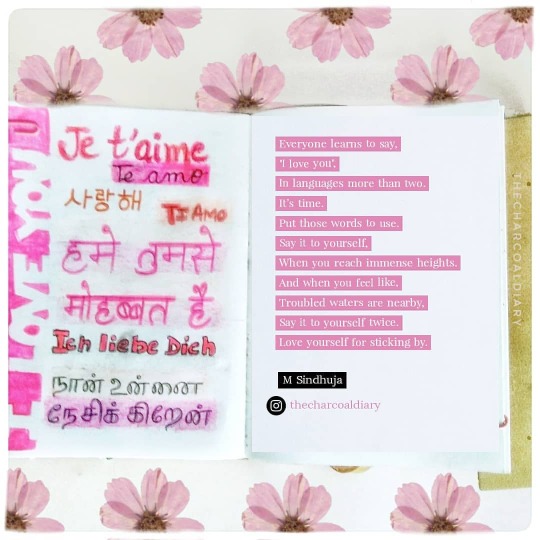 I LOVE YOU
Je t'aime
Te amo
사랑해
TI AMO
हमे तुमसे
मोहब्बत है
Ich liebe Dich
நான் உன்னை
நேசிக் கிறேன்
Everyone learns to say,
'I love you',
In languages more than two.
It's time.
Put those words to use.
Say it to yourself,
When you reach immense heights.
And when you feel like,
Troubled waters are nearby,
Say it to yourself twice.
Love yourself for sticking by.
M Sindhuja
thecharcoaldiary
THECHARCOALDIARY